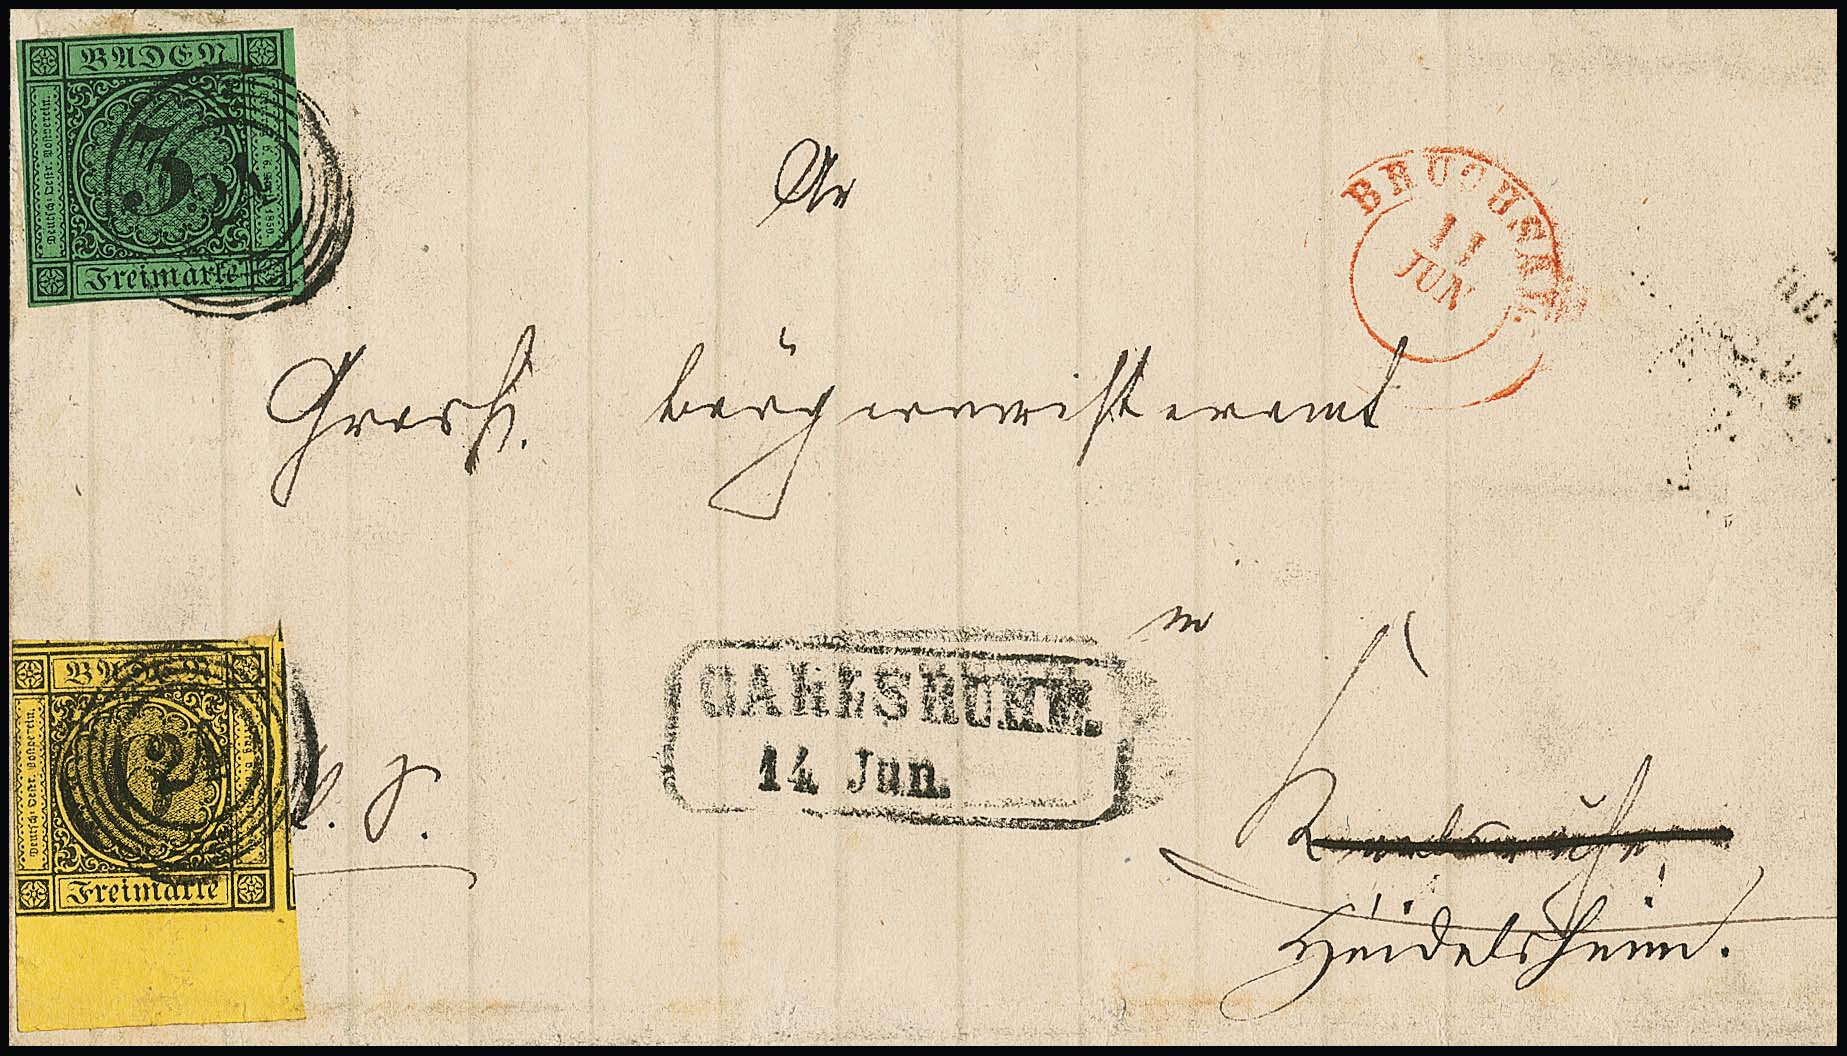 BADEN
Deutsch: Oestr. Postverein.
3
Freimarke
An
BRUCHSAL
11
JUN
Grossh. bürgermeisteramt
in
CARLSRUHE.
14 Jun.
BADEN
Deutsch: Oestr. Postverein.
Freimarke
Karlsruhe
Heidelsheim.